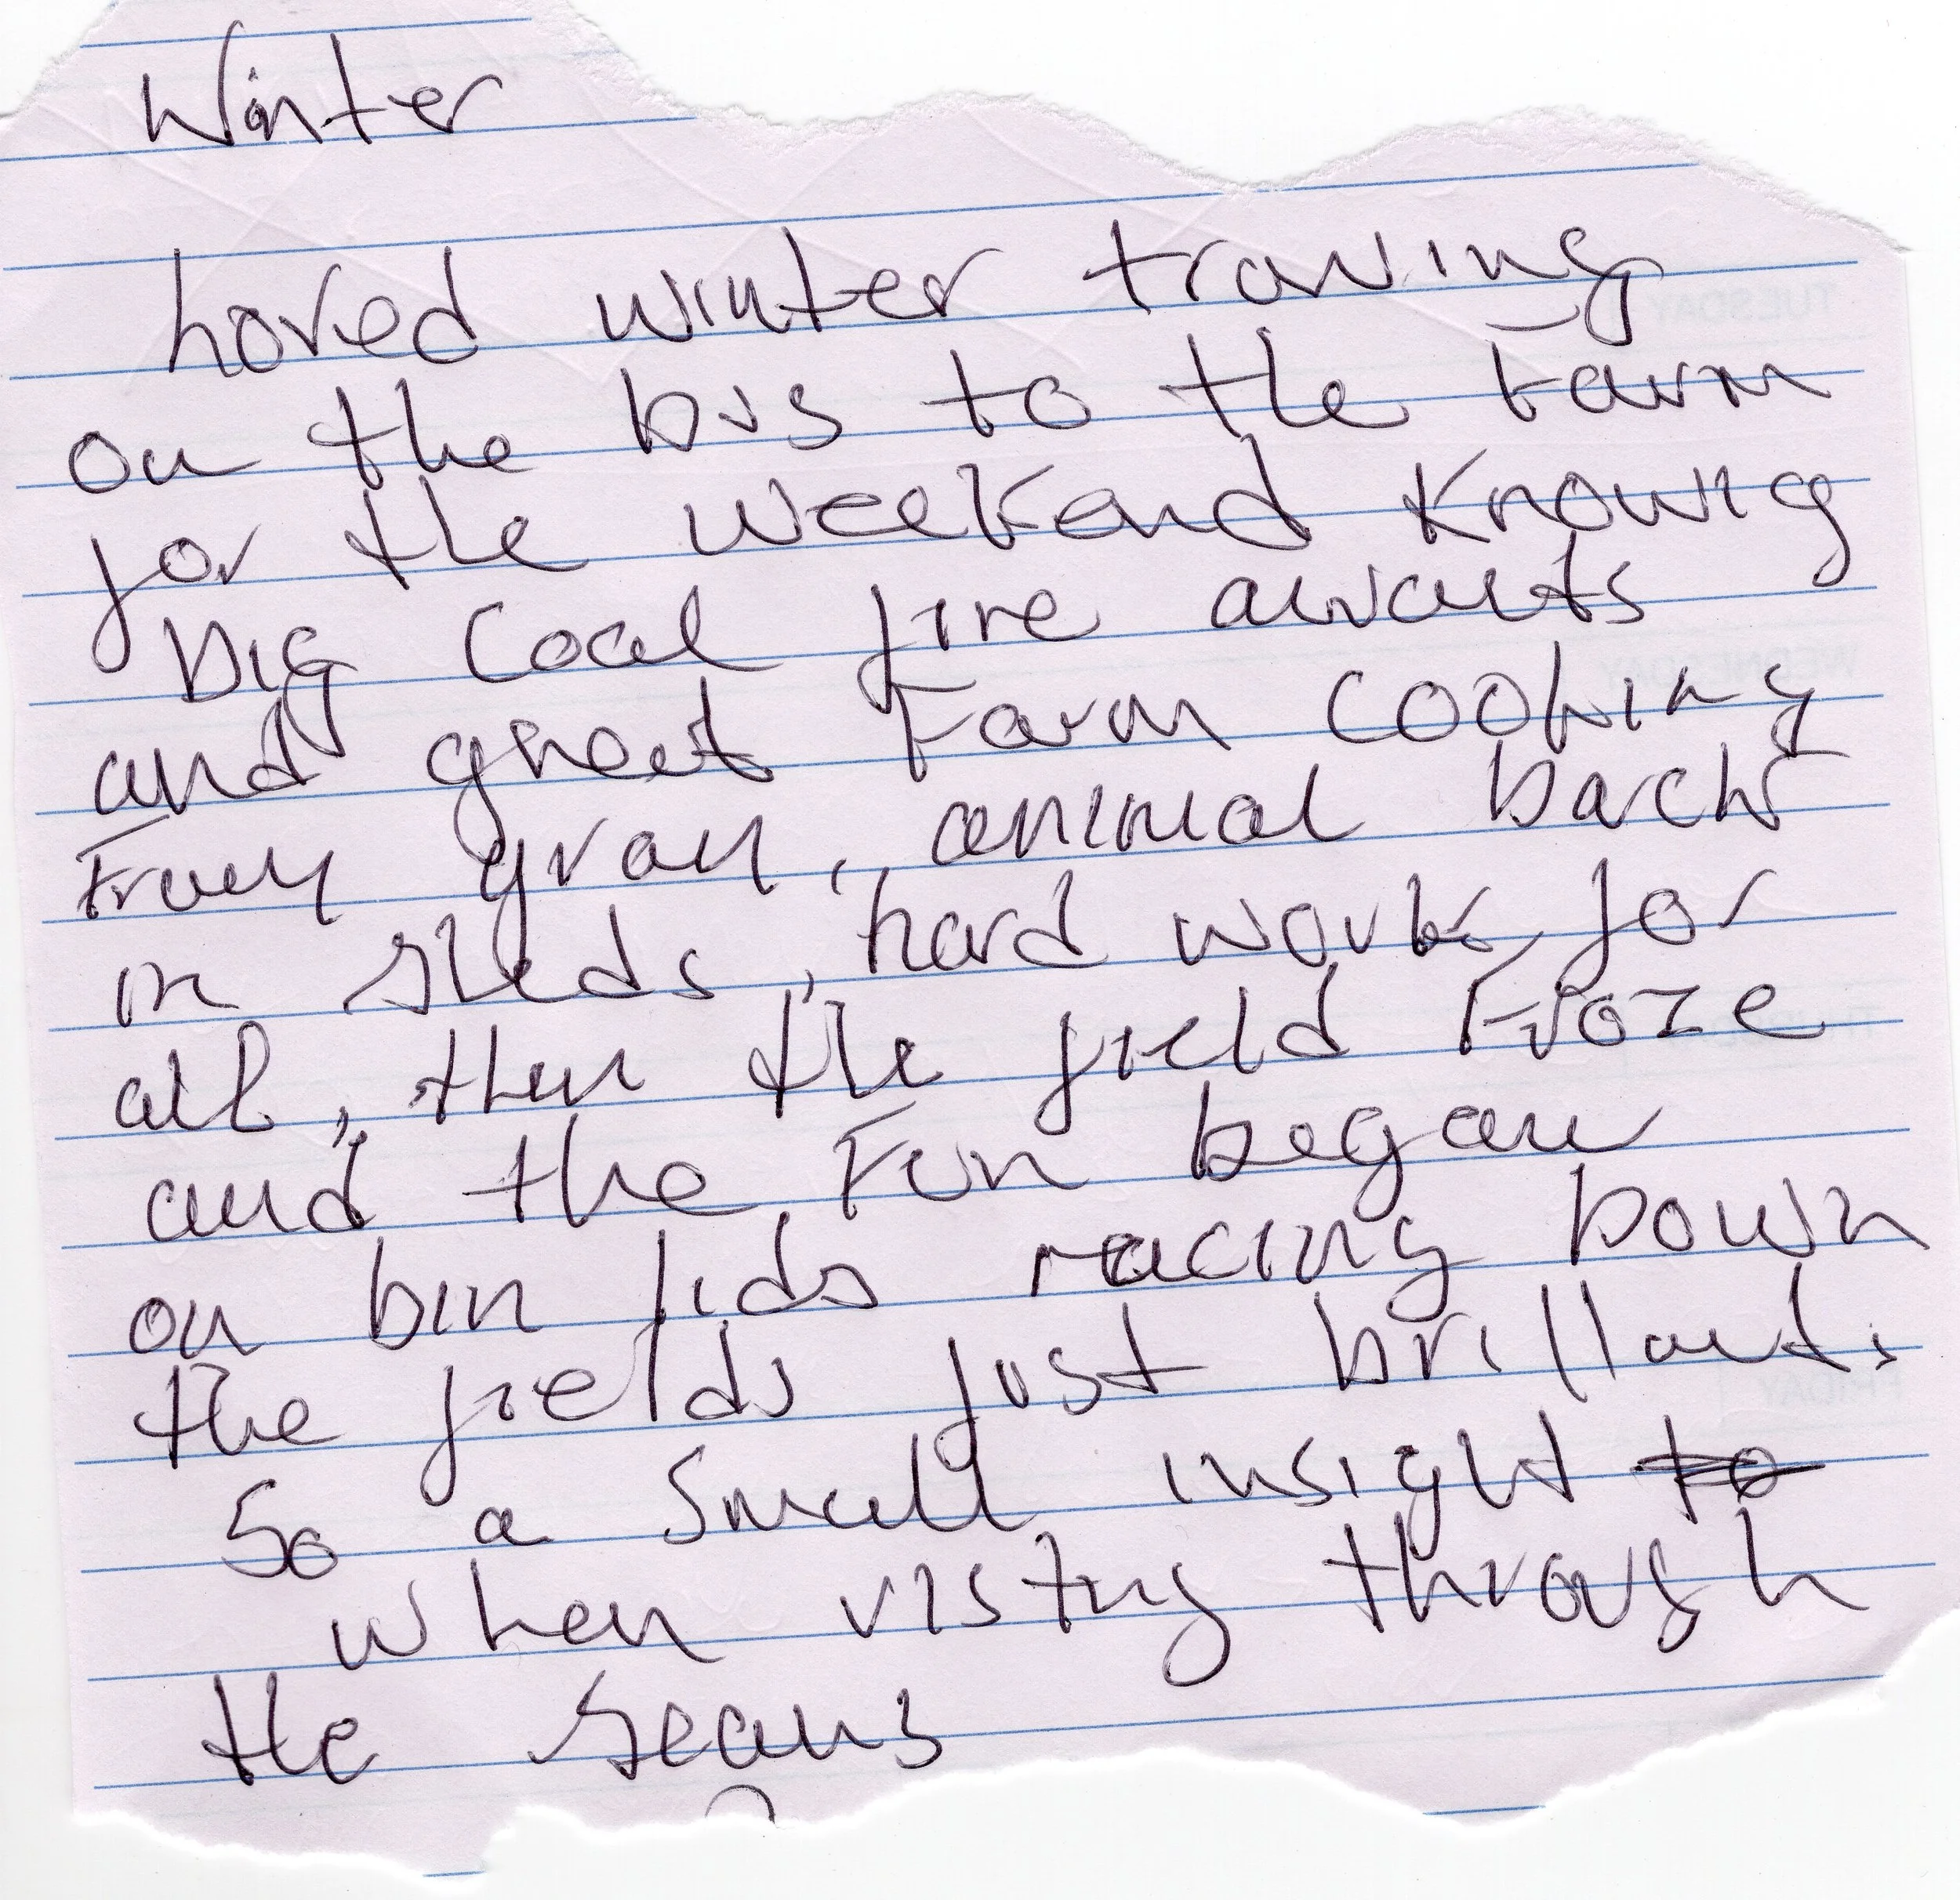 Winter
hoved winter traving
on the bus to the Farm
for the weekend Knowig
Big Coal fire awaits
and great Farm cooking
From gran, animal back
in sheds, hard work for
all, then the field Froze
and the Fun began
on bin lids racing Down
the fields just brillant.
So a small insight to
when vistng through
the seans